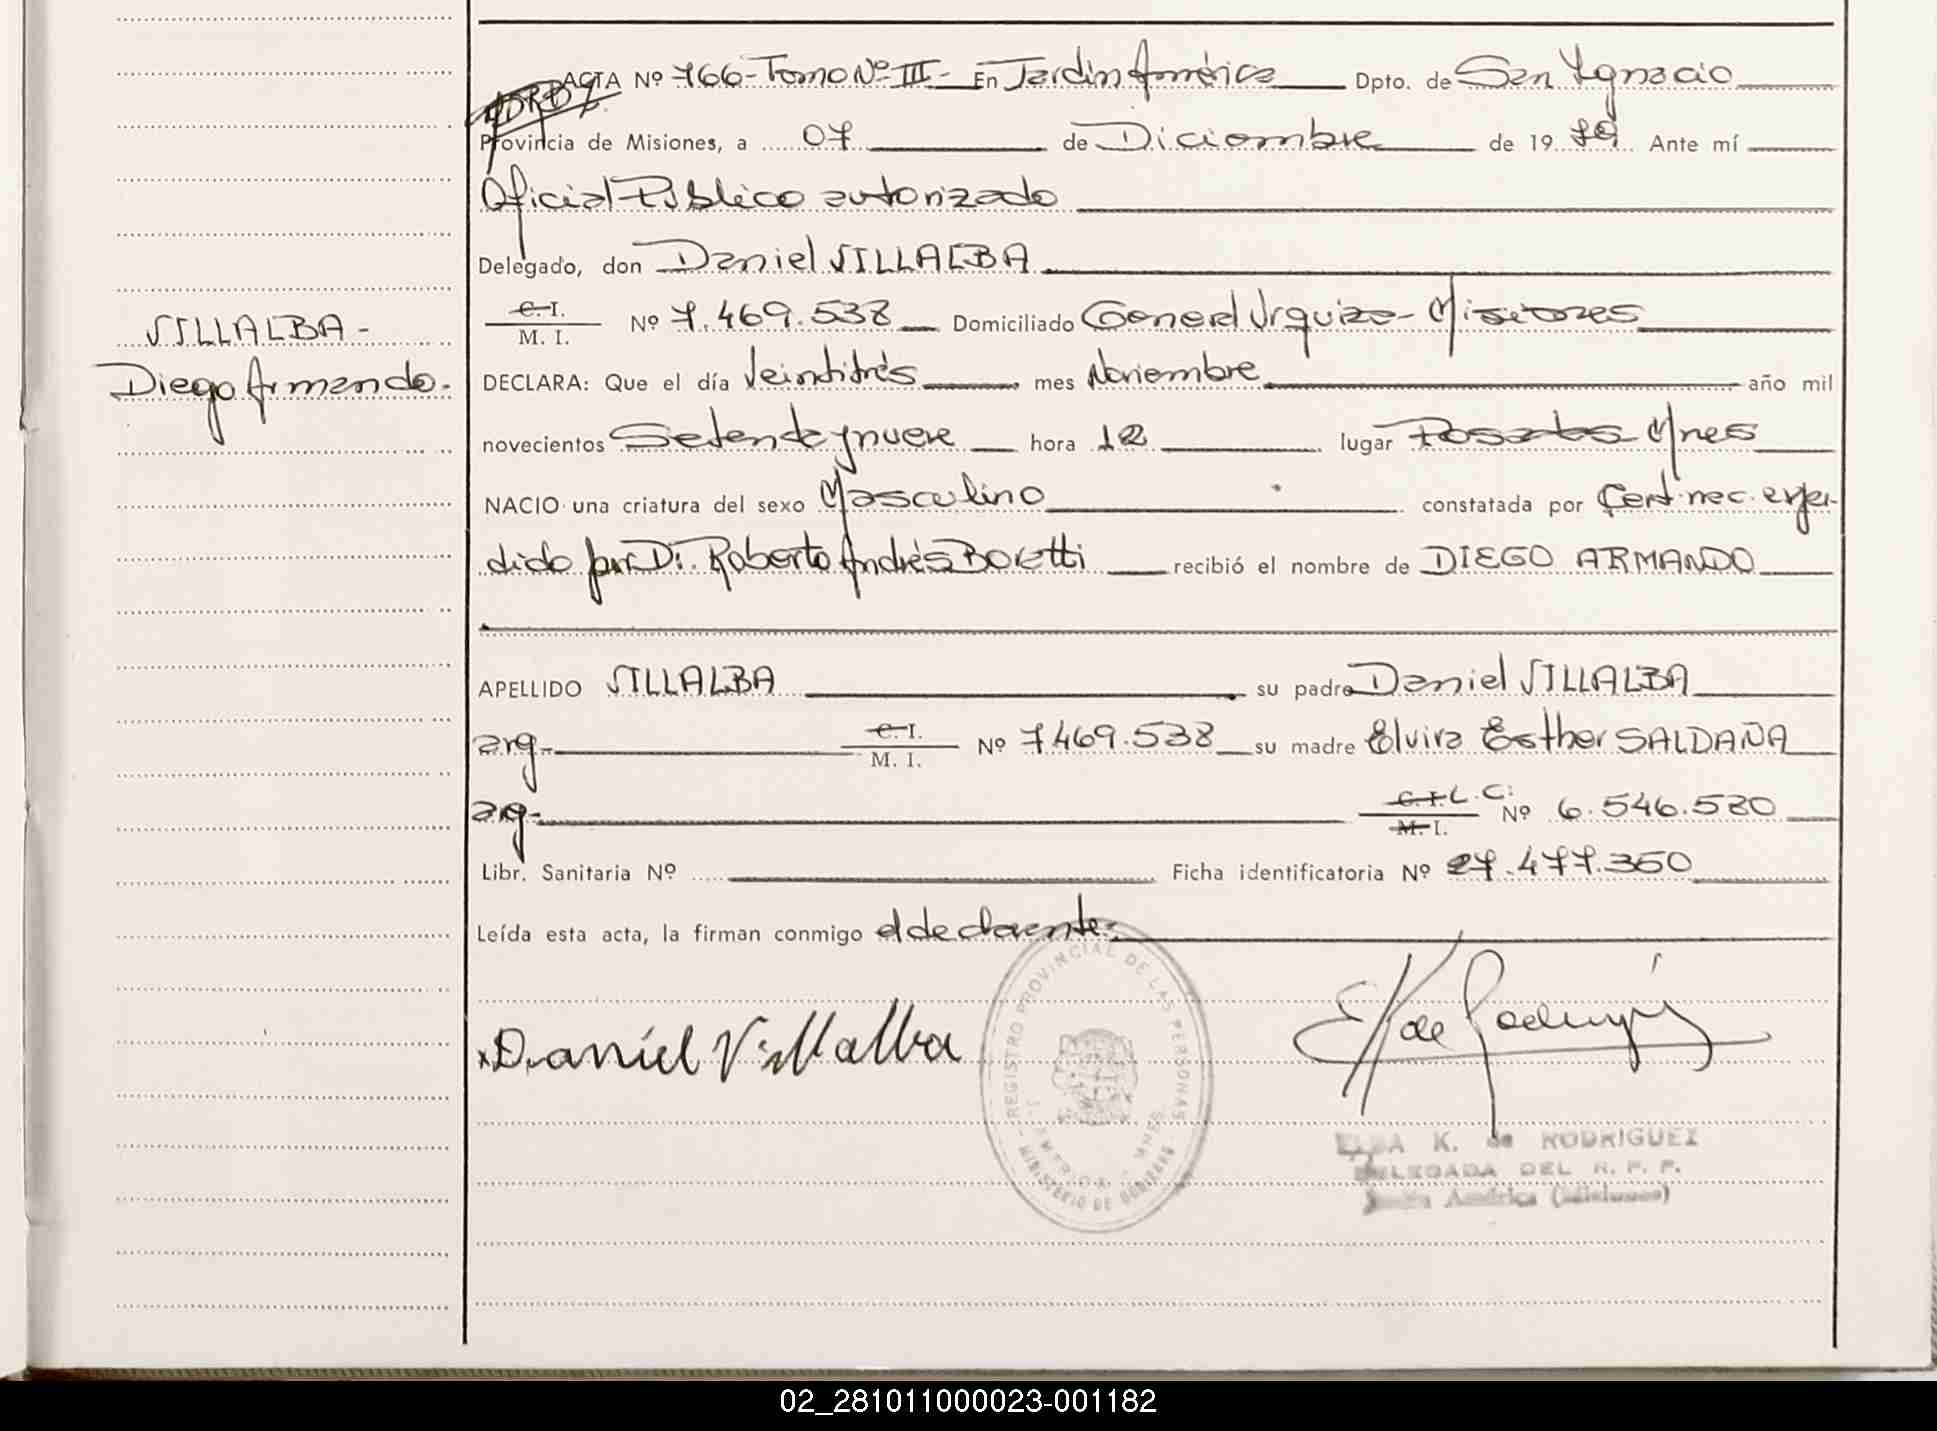 ACTA Nº 766-Tomo Nº III- En Jardín América Dpto. de San Ygnacio
Provincia de Misiones, a 07 de Diciembre de 19 79 Ante mí
Oficial Público autorizado
Delegado, don Daniel VILLALBA
C.I.
M. I. Nº 7.469.538 Domiciliado General Urquiza - Misiones
VILLALBA -
Diego Armando.
DECLARA: Que el día Veintitrés mes Noviembre año mil
novecientos Setenta y nueve hora 12 lugar Posadas Mnes
NACIO una criatura del sexo Masculino constatada por Cert. nac. expe-
dido por Dr. Roberto Andrés recibió el nombre de DIEGO ARMANDO
APELLIDO VILLALBA su padre Daniel VILLALBA
arg- C.I.
M. I. Nº 7469.538 su madre Elvira Esther SALDAÑA
arg- C.I. L.C.
M. I. Nº 6.546.530
Libr. Sanitaria Nº Ficha identificatoria Nº 27.477.350
Leída esta acta, la firman conmigo el declarante.
Daniel Villalba
E K de Rodríguez
REGISTRO PROVINCIAL DE LAS PERSONAS
MINISTERIO DE GOBIERNO
ELBA K. de RODRIGUEZ
DELEGADA DEL R. P. P.
Jardín América (Misiones)
02_281011000023-001182